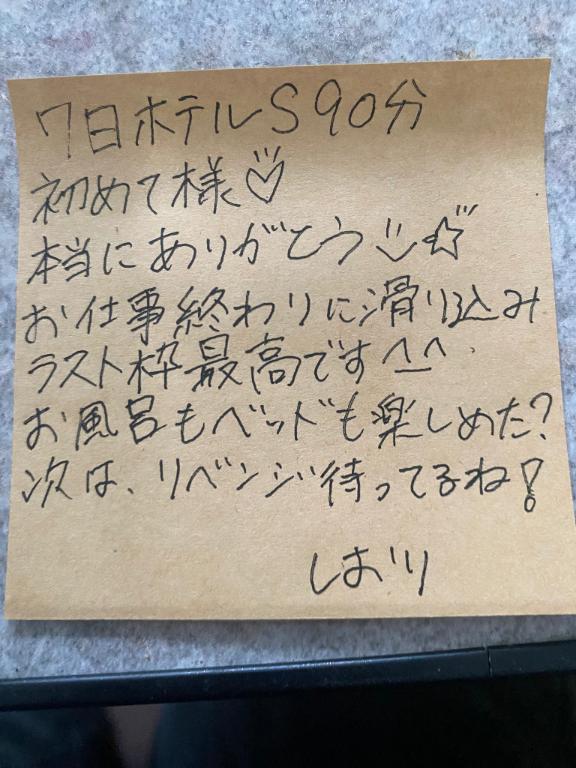 7日ホテルS90分
初めて様♡
本当にありがとう☆
お仕事終わりに滑り込み
ラスト枠最高です^_^
お風呂もベッドも楽しめた?
次は、リベンジ待ってるね!
しおり